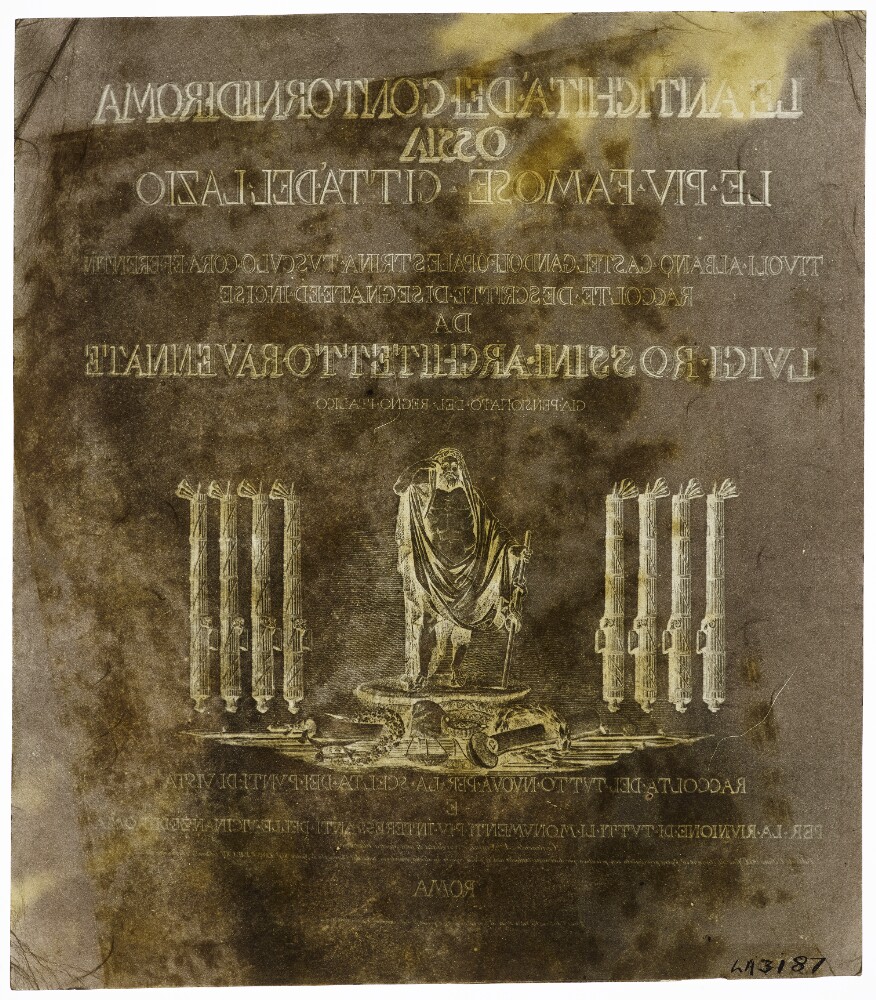 LE ANTICHITA' DEI CONTORNI DI ROMA
OSSIA
LE·PIV·FAMOSE·CITTÀ DEL LAZIO
TIVOLI·ALBANO·CASTEL GANDOLFO PALESTRINA·TVSCVLO·CORA E FERENTIN
RACCOLTE·DESCRITTE·DISEGNATE ED·INCISE
DA
LVIGI·ROSSINI·ARCHITETTO RAVENNATE
GIÀ PENSIONATO·DEL·REGNO·ITALICO
RACCOLTA·DEL TVTTO·NUOVA·PER·LA·SCELTA·DEI·PVNTI·DI VISTA
E
PER·LA·RIVNIONE·DI·TVTTI·LI·MONVMENTI·PIV·INTERESSANTI·DELLE·VICIN·
ROMA
LA3187